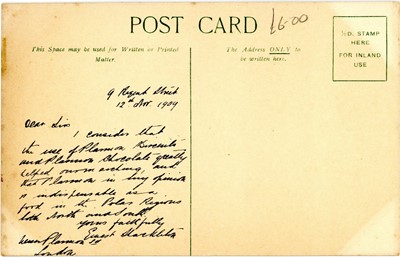 POST CARD
£6.00
This Space may be used for Written or Printed
Matter.
The Address ONLY to
be written here.
STAMP
HERE
FOR INLAND
USE
9 Regent Street
12th Nov. 1909
Dear Sirs
I consider that
the use of Plasmon Biscuits
and Plasmon Chocolate greatly
helped our marching, and
that Plasmon in my opinion
is indispensable as a
food in the Polar Regions
both North and South
yours faithfully
Ernest Shackleton
Plasmon Ld
London